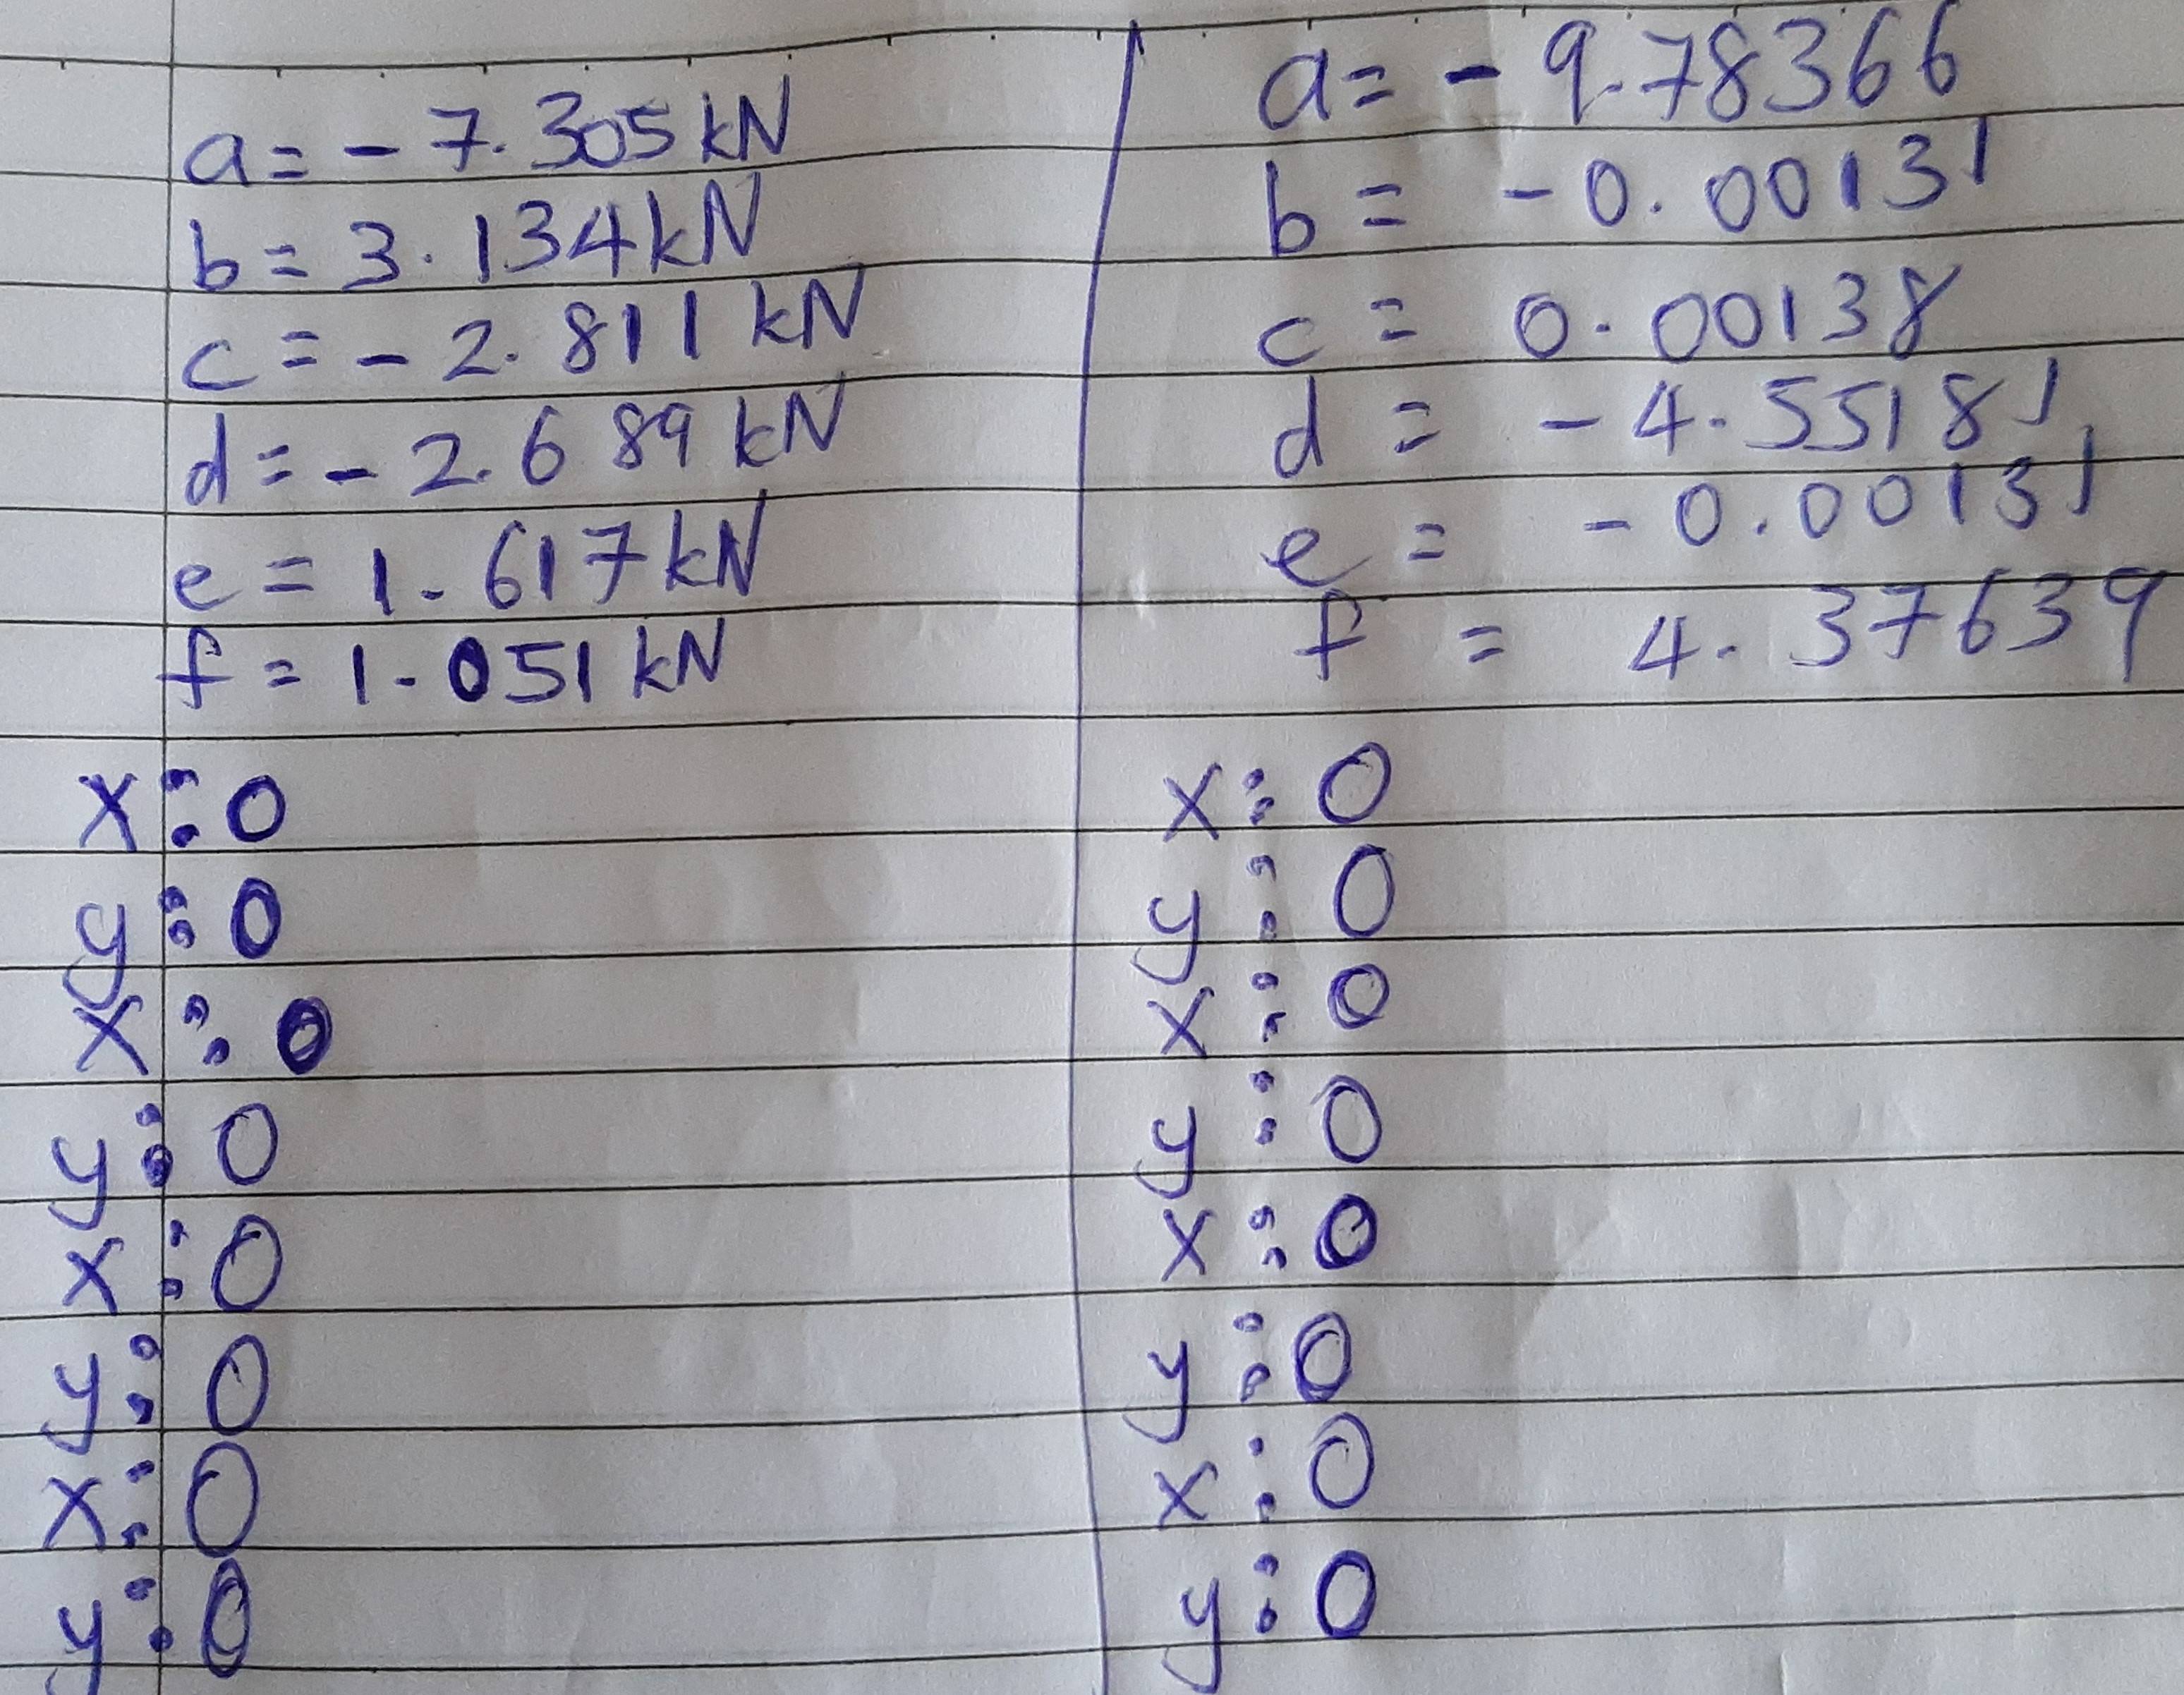 a = - 7.305 kN
b = 3.134 kN
c = - 2.811 kN
d = - 2.689 kN
e = 1.617 kN
f = 1.051 kN
x : 0
y : 0
x : 0
y : 0
x : 0
y : 0
x : 0
y : 0
a = - 9.78366
b = -0.00131
c = 0.00138
d = - 4.55181
e = - 0.00131
f = 4.37639
x : 0
y : 0
x : 0
y : 0
x : 0
y : 0
x : 0
y : 0